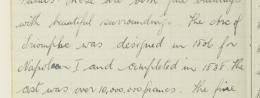 these are both fine buildings
with beautiful surrounding. The Arc of
Triomphe was designed in 1806 for
Napoleon I and completed in 1838. The
cost was over 10,000,000 francs. The fine